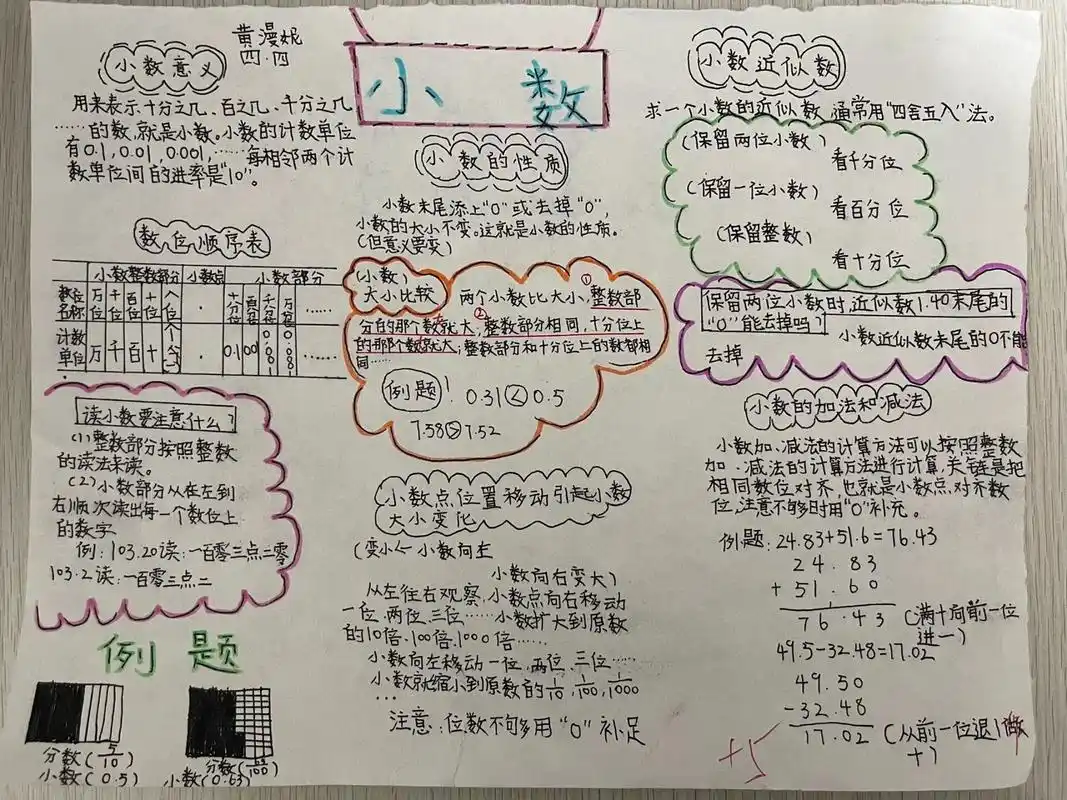 黄漫妮
四.四
小数
小数意义
用来表示十分之几、百之几、千分之几
……的数,就是小数。小数的计数单位
有0.1,0.01,0.001,……每相邻两个计
数单位间的进率是"10"。
数位顺序表
小数整数部分 小数点 小数部分
数位名称 万位 千位 百位 十位 个位 · 十分位 百分位 千分位 万分位 ……
计数单位 万 千 百 十 个(一) · 0.1 0.001 0.0001 ……
读小数要注意什么?
(1)整数部分按照整数
的读法来读。
(2)小数部分从在左到
右顺次读出每一个数位上
的数字
例:103.20读:一百零三点二零
103.2读:一百零三点二
例题
分数(5/10)
小数(0.5)
分数(63/100)
小数(0.63)
小数的性质
小数末尾添上"0"或去掉"0",
小数的大小不变。这就是小数的性质。
(但意义要变)
(小数)
大小比较
两个小数比大小,①整数部
分的那个数就大;②整数部分相同,十分位上
的那个数就大;整数部分和十分位上的数都相
同……
例题! 0.31<0.5
7.58>7.52
小数点位置移动引起小数
大小变化
(变小← 小数向左
小数向右变大)
从左往右观察,小数点向右移动
一位、两位、三位……小数扩大到原数
的10倍、100倍、1000倍……
小数向左移动一位,两位,三位……
小数就缩小到原数的1/10,1/100,1/1000
…
注意:位数不够用"0"补足
小数近似数
求一个小数的近似数,通常用"四舍五入"法。
(保留两位小数)
看千分位
(保留一位小数)
看百分位
(保留整数)
看十分位
保留两位小数时,近似数1.40末尾的
"0"能去掉吗?
小数近似数末尾的0不能
去掉
小数的加法和减法
小数加、减法的计算方法可以按照整数
加、减法的计算方法进行计算,关键是把
相同数位对齐,也就是小数点对齐数
位,注意不够时用"0"补充。
例题:24.83+51.6=76.43
24.83
+ 51.60
76.43 (满十向前一位
进一)
49.5-32.48=17.02
49.50
-32.48
17.02 (从前一位退1做
十)
+5